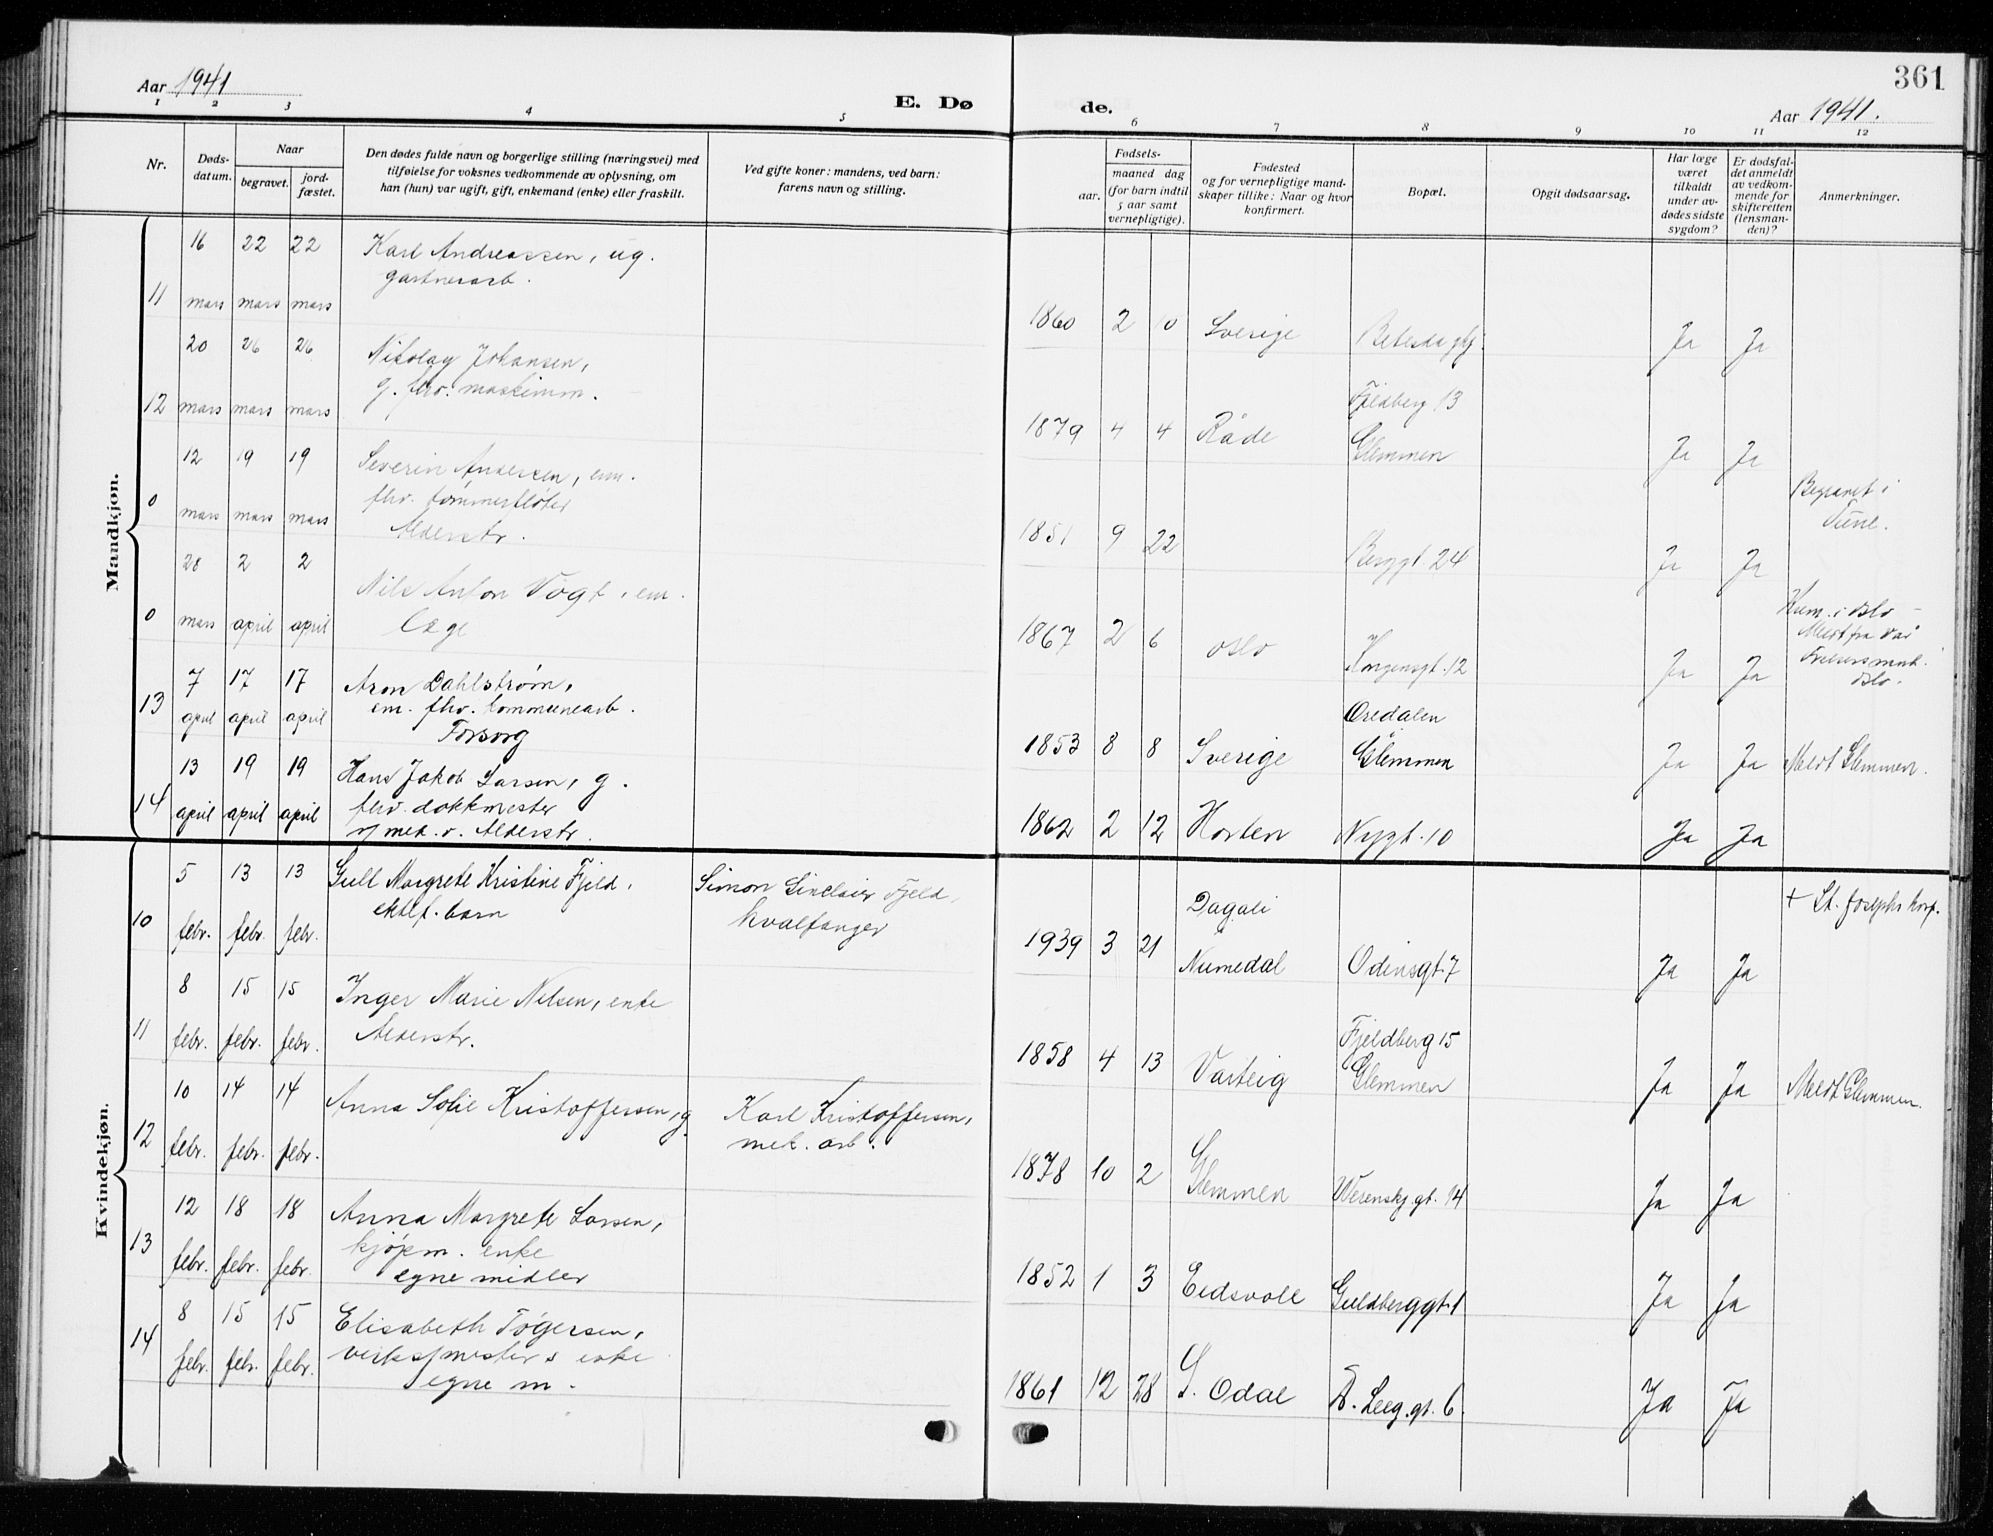 361
Aar 1941
E. Dø de.
Aar 1941.
1 2 3 4 5 6 7 8 9 10 11 12
Nr.
Døds-
datum.
Naar
begravet.
jord-
fæstet.
Den dødes fulde navn og borgerlige stilling (næringsvei) med
tilføielse for voksnes vedkommende av oplysning, om
han (hun) var ugift, gift, enkemand (enke) eller fraskilt.
Ved gifte koner: mandens, ved barn:
farens navn og stilling.
Fødsels-
aar.
maaned dag
(for barn indtil
5 aar samt
vernepligtige).
Fødested
og for vernepligtige mand-
skaper tillike: Naar og hvor
konfirmert.
Bopæl.
Opgit dødsaarsag.
Har læge
været
tilkaldt
under av-
dødes sidste
sygdom?
Er dødsfal-
det anmeldt
av vedkom-
mende for
skifteretten
(lensman-
den)?
Anmerkninger.
Mandkjøn.
11 16 mars 22 mars 22 mars Karl Andreassen, ug.
gartnerarb.
1860 2 10 Sverige Betesda Ja Ja
12 20 mars 26 mars 26 mars Nikolay Johansen,
g. fhv. maskinm.
1879 4 4 Råde Fjeldberg 13
Glemmen Ja Ja
0 12 mars 19 mars 19 mars Severin Andersen, em.
fhv. tømmerfløter
Alderstr.
1851 9 22 Berggt. 24 Ja Ja Begravet i
Tune.
0 28 mars 2 april 2 april Nils Anton Vogt, em.
Læge
1867 2 6 Oslo Kongensgt. 12 Ja Ja Krem. i Oslo
Meldt fra Vår
Frelsers menh.
Oslo.
13 7 april 17 april 17 april Aron Dahlstrøm,
em. fhv. kommunearb.
Forsorg
1853 8 8 Sverige Oredalen
Glemmen Ja Ja Meldt Glemmen.
14 13 april 19 april 19 april Hans Jakob Larsen, g.
fhv. dokkmester
Alderstr.
1862 2 12 Horten Nygt. 10 Ja Ja
Kvindekjøn.
10 5 febr. 13 febr. 13 febr. Gull Margrete Kristine Fjeld,
ektef. barn
Simon Sinclair Fjeld,
hvalfanger
1939 3 21 Dagali
Numedal Odinsgt. 7 Ja Ja + St. Josephs hosp.
11 8 febr. 15 febr. 15 febr. Inger Marie Nilsen, enke
Alderstr.
1858 4 13 Varteig Fjeldberg 15
Glemmen Ja Ja Meldt Glemmen.
12 10 febr. 14 febr. 14 febr. Anna Sofie Kristoffersen, g.
Karl Kristoffersen,
mek. arb.
1878 10 2 Glemmen Werenskj.gt. 14 Ja Ja
13 12 febr. 18 febr. 18 febr. Anna Margrete Larsen,
kjøpm. enke
egne midler
1852 1 3 Eidsvoll Guldberggt. 1 Ja Ja
14 8 febr. 15 febr. 15 febr. Elisabeth Tøgersen,
verksmesters enke
egne m.
1861 12 28 S. Odal Leeg.gt. 6. Ja Ja